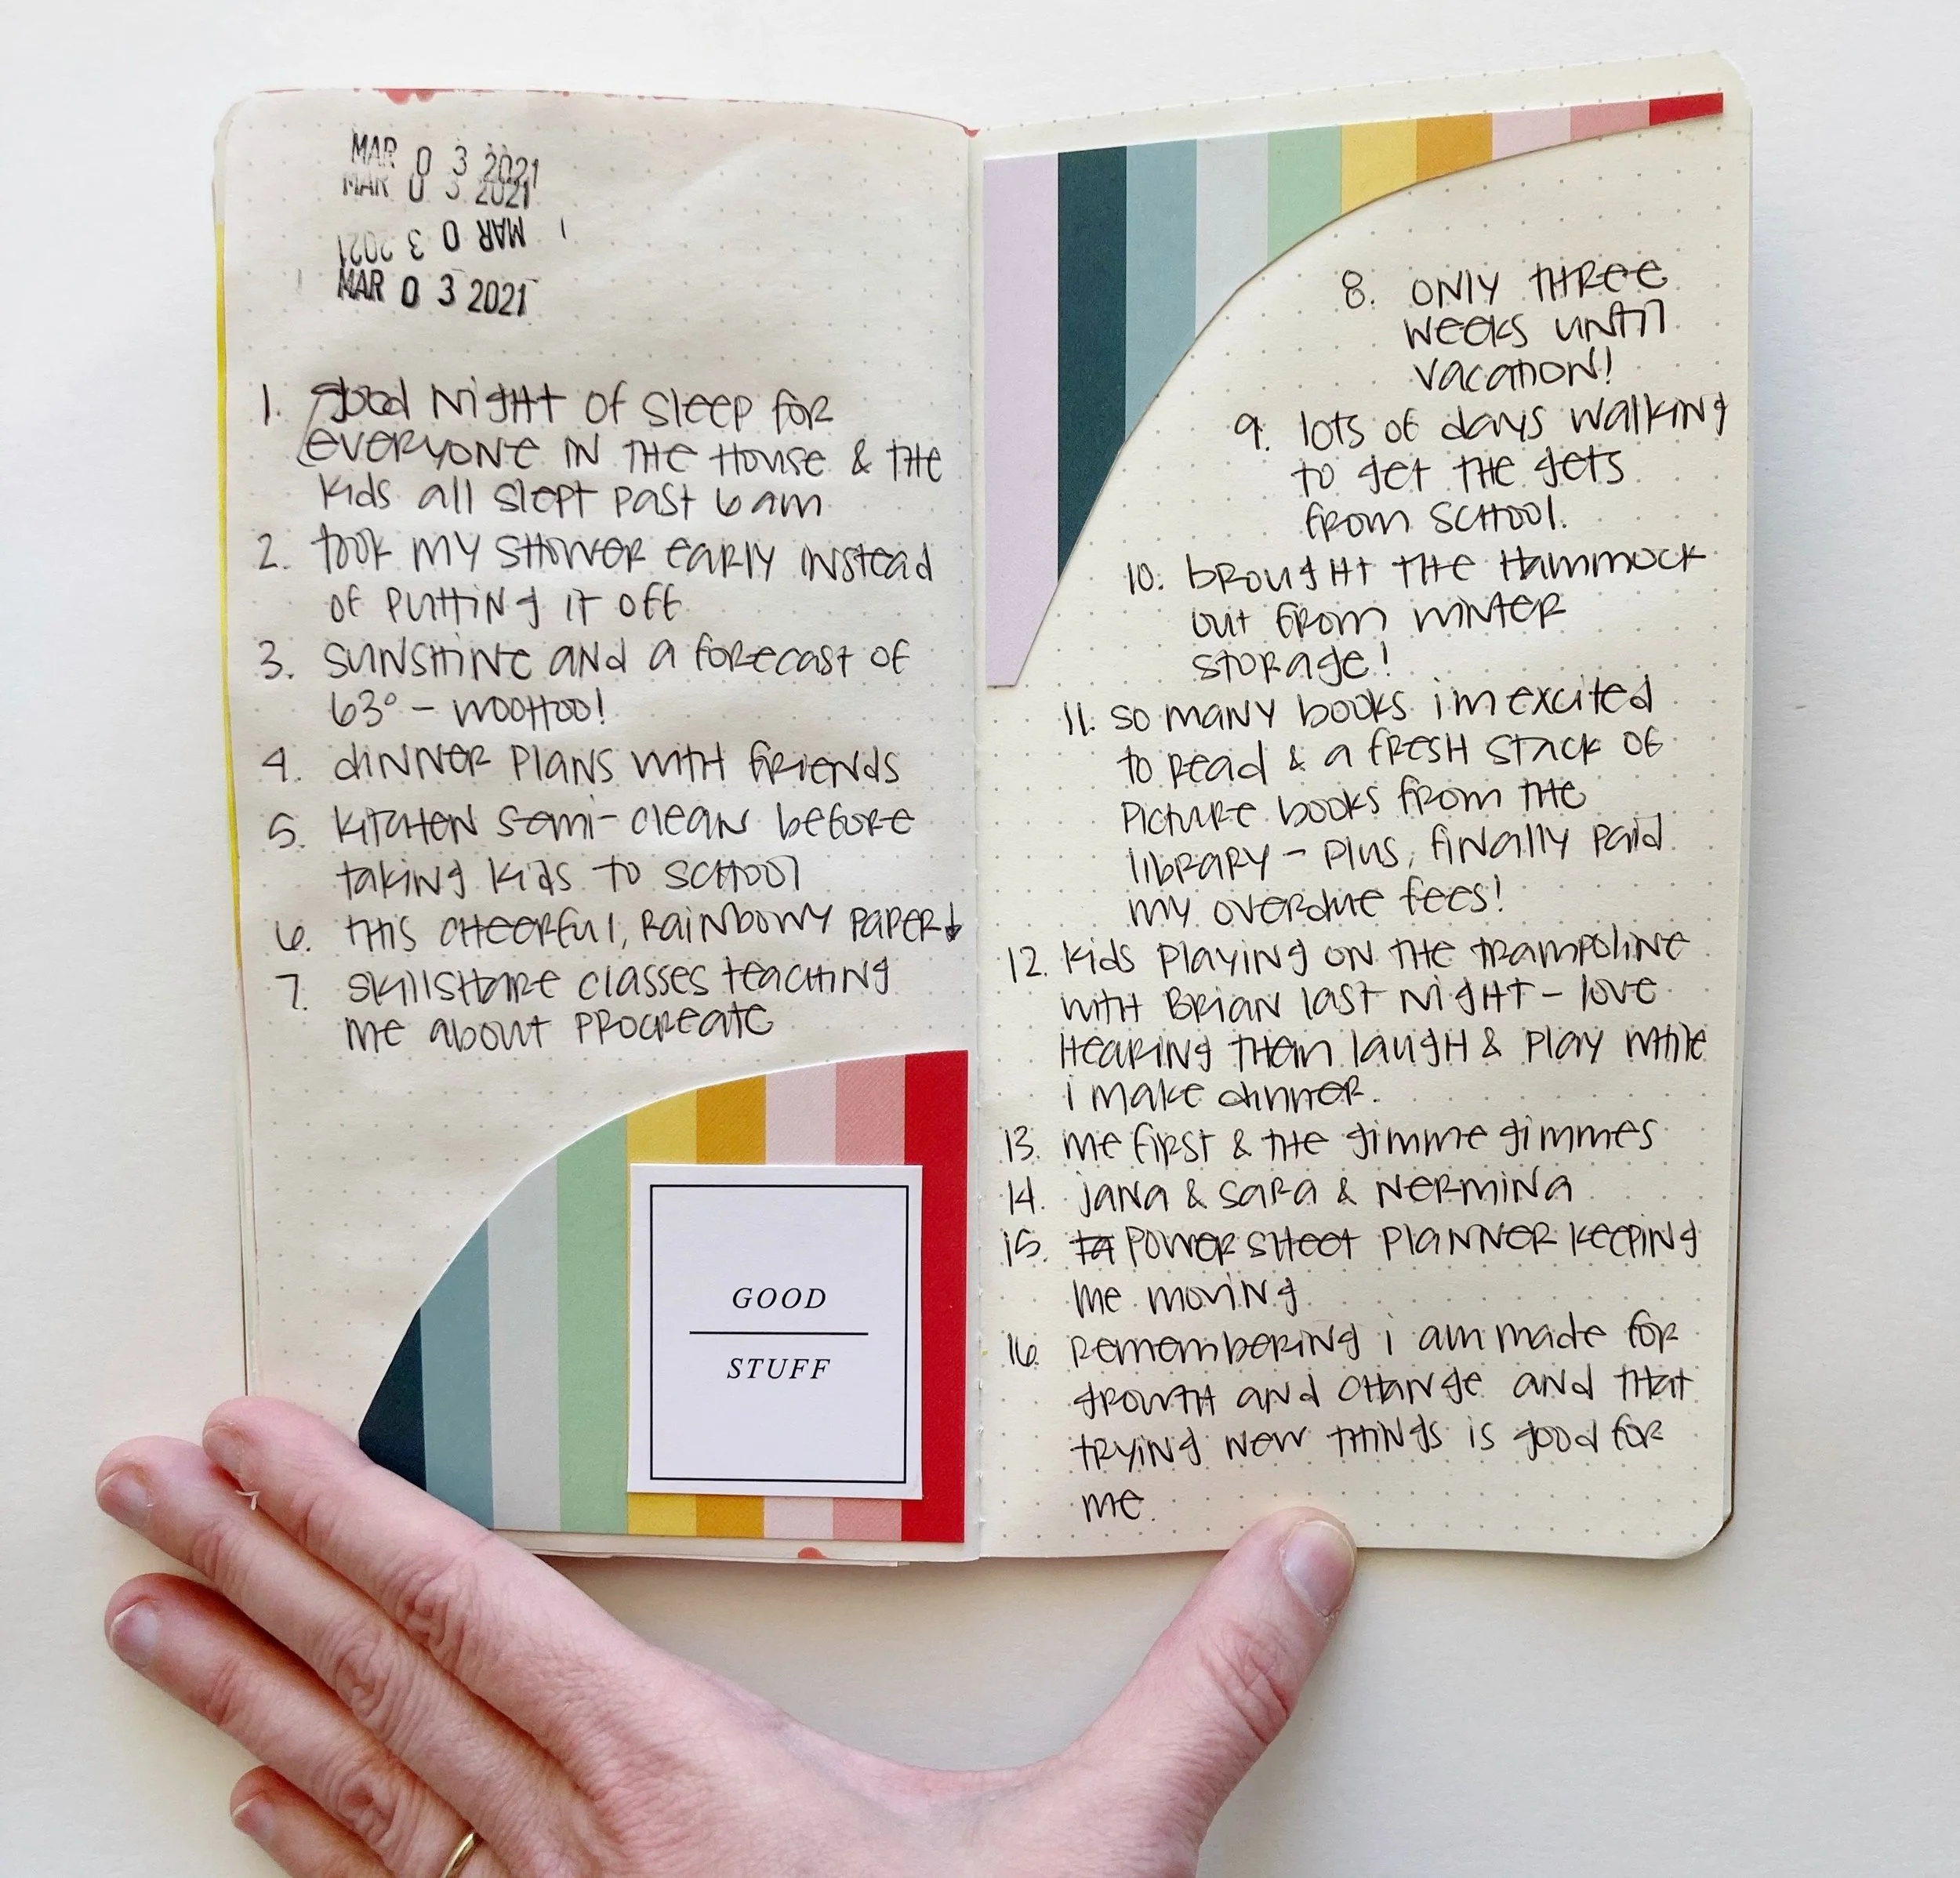 MAR 03 2021
MAR 03 2021
MAR 03 2021
MAR 03 2021
1. good night of sleep for
everyone in the house & the
kids all slept past 6am
2. took my shower early instead
of putting it off
3. sunshine and a forecast of
63° - woohoo!
4. dinner plans with friends
5. kitchen semi-clean before
taking kids to school
6. this cheerful, rainbowy paper↓
7. skillshare classes teaching
me about procreate
GOOD
STUFF
8. only three
weeks until
vacation!
9. lots of days walking
to get the gets
from school.
10. brought the hammock
out from winter
storage!
11. so many books im excited
to read & a fresh stack of
picture books from the
library - plus, finally paid
my overdue fees!
12. kids playing on the trampoline
with Brian last night - love
hearing them laugh & play while
i make dinner.
13. me first & the gimme gimmes
14. jana & sara & nermina
15. power sheet planner keeping
me moving
16. remembering i am made for
growth and change and that
trying new things is good for
me.